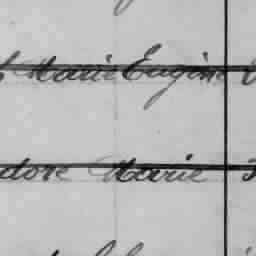 Marie Eugène
dore Marie